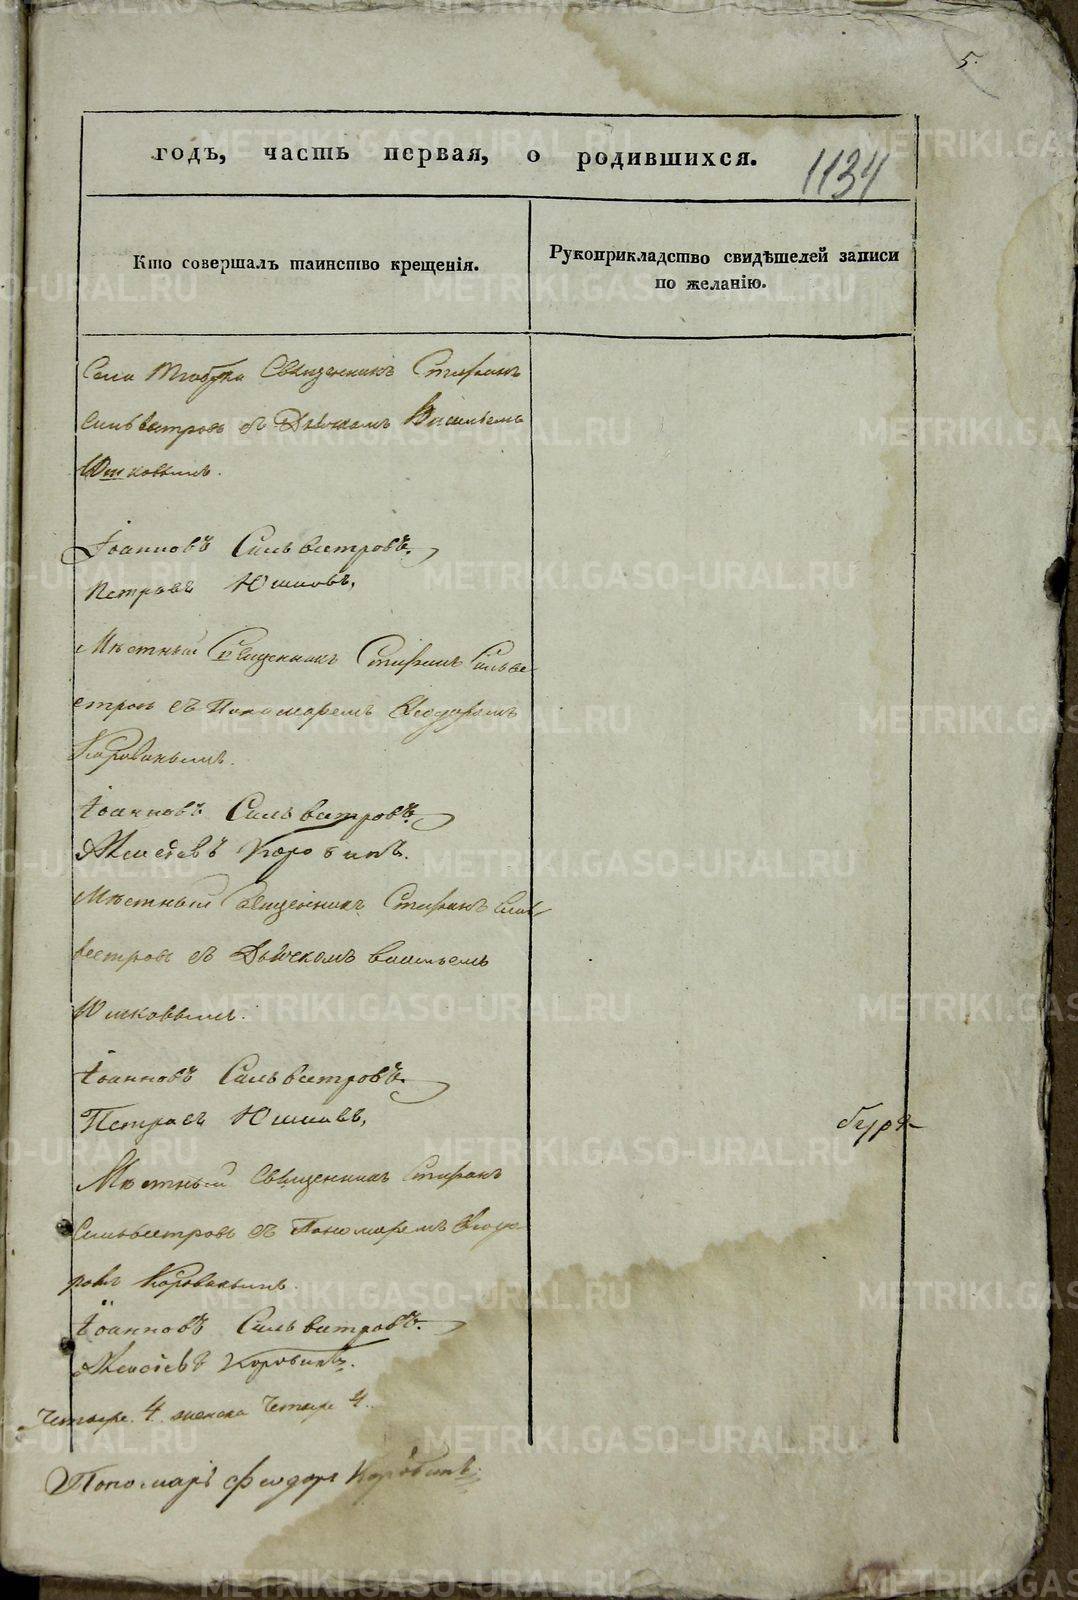 5.
годъ, часть первая, о родившихся.
1134
Кто совершалъ таинство крещенія.
Рукоприкладство свидѣтелей записи
по желанію.
Села Священникъ Стефанъ
Сильвестровъ съ Дьячкомъ Васильемъ
Юшковымъ.
Іоанновъ Сильвестровъ.
Петровъ Юшковъ,
Мѣстный Священникъ Стефанъ Сильве-
стровъ съ Пономаремъ Ѳеодоромъ
Коровинымъ.
Іоанновъ Сильвестровъ.
Алексѣевъ Коровинъ.
Мѣстный Священникъ Стефанъ Сильв
вестровъ съ Дьячкомъ Васильемъ
Юшковымъ.
Іоанновъ Сильвестровъ.
Петровъ Юшковъ,
Мѣстный Священникъ Стефанъ
Сильвестровъ съ Пономаремъ Ѳеодо
ромъ Коровинымъ.
Іоанновъ Сильвестровъ.
Алексѣевъ Коровинъ.
Четыре 4 женска Четыре 4.
Пономарь Феодоръ Коровинъ.
METRIKI.GASO-URAL.RU